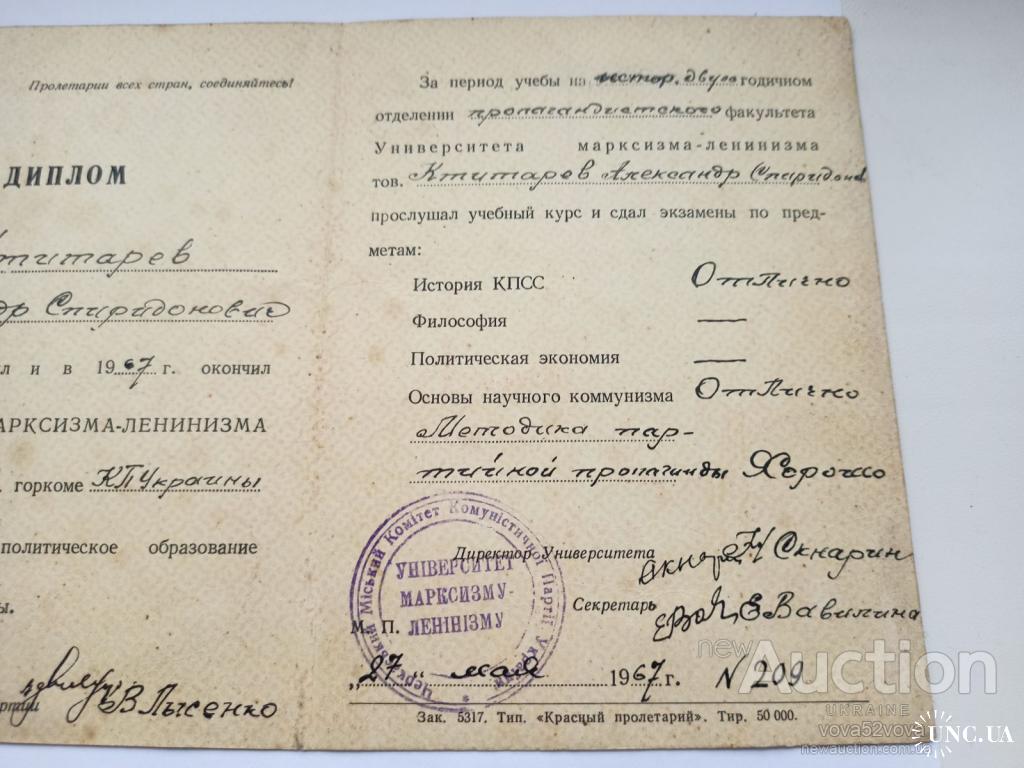 Пролетарии всех стран, соединяйтесь!
ДИПЛОМ
Ктитарев
др Спиридонович
л и в 1967 г. окончил
АРКСИЗМА-ЛЕНИНИЗМА
горкоме КП Украины
политическое образование
ы.
В Лысенко
За период учебы на истор. двухгодичном
отделении пропагандистского факультета
Университета марксизма-ленинизма
тов. Ктитарев Александр Спиридонов
прослушал учебный курс и сдал экзамены по пред-
метам:
История КПСС Отлично
Философия —
Политическая экономия —
Основы научного коммунизма Отлично
Методика пар-
тийной пропаганды Хорошо
Директор Университета Скнарин
Секретарь Е Вавилина
Черкаський Міський Комітет Комуністичної Партії України
УНІВЕРСИТЕТ
МАРКСИЗМУ-
ЛЕНІНІЗМУ
М. П.
„27" мая 1967 г. N 209
Зак. 5317. Тип. «Красный пролетарий». Тир. 50 000.
newAuction
UKRAINE
vova52vova
newauction.com.ua
UNC.UA